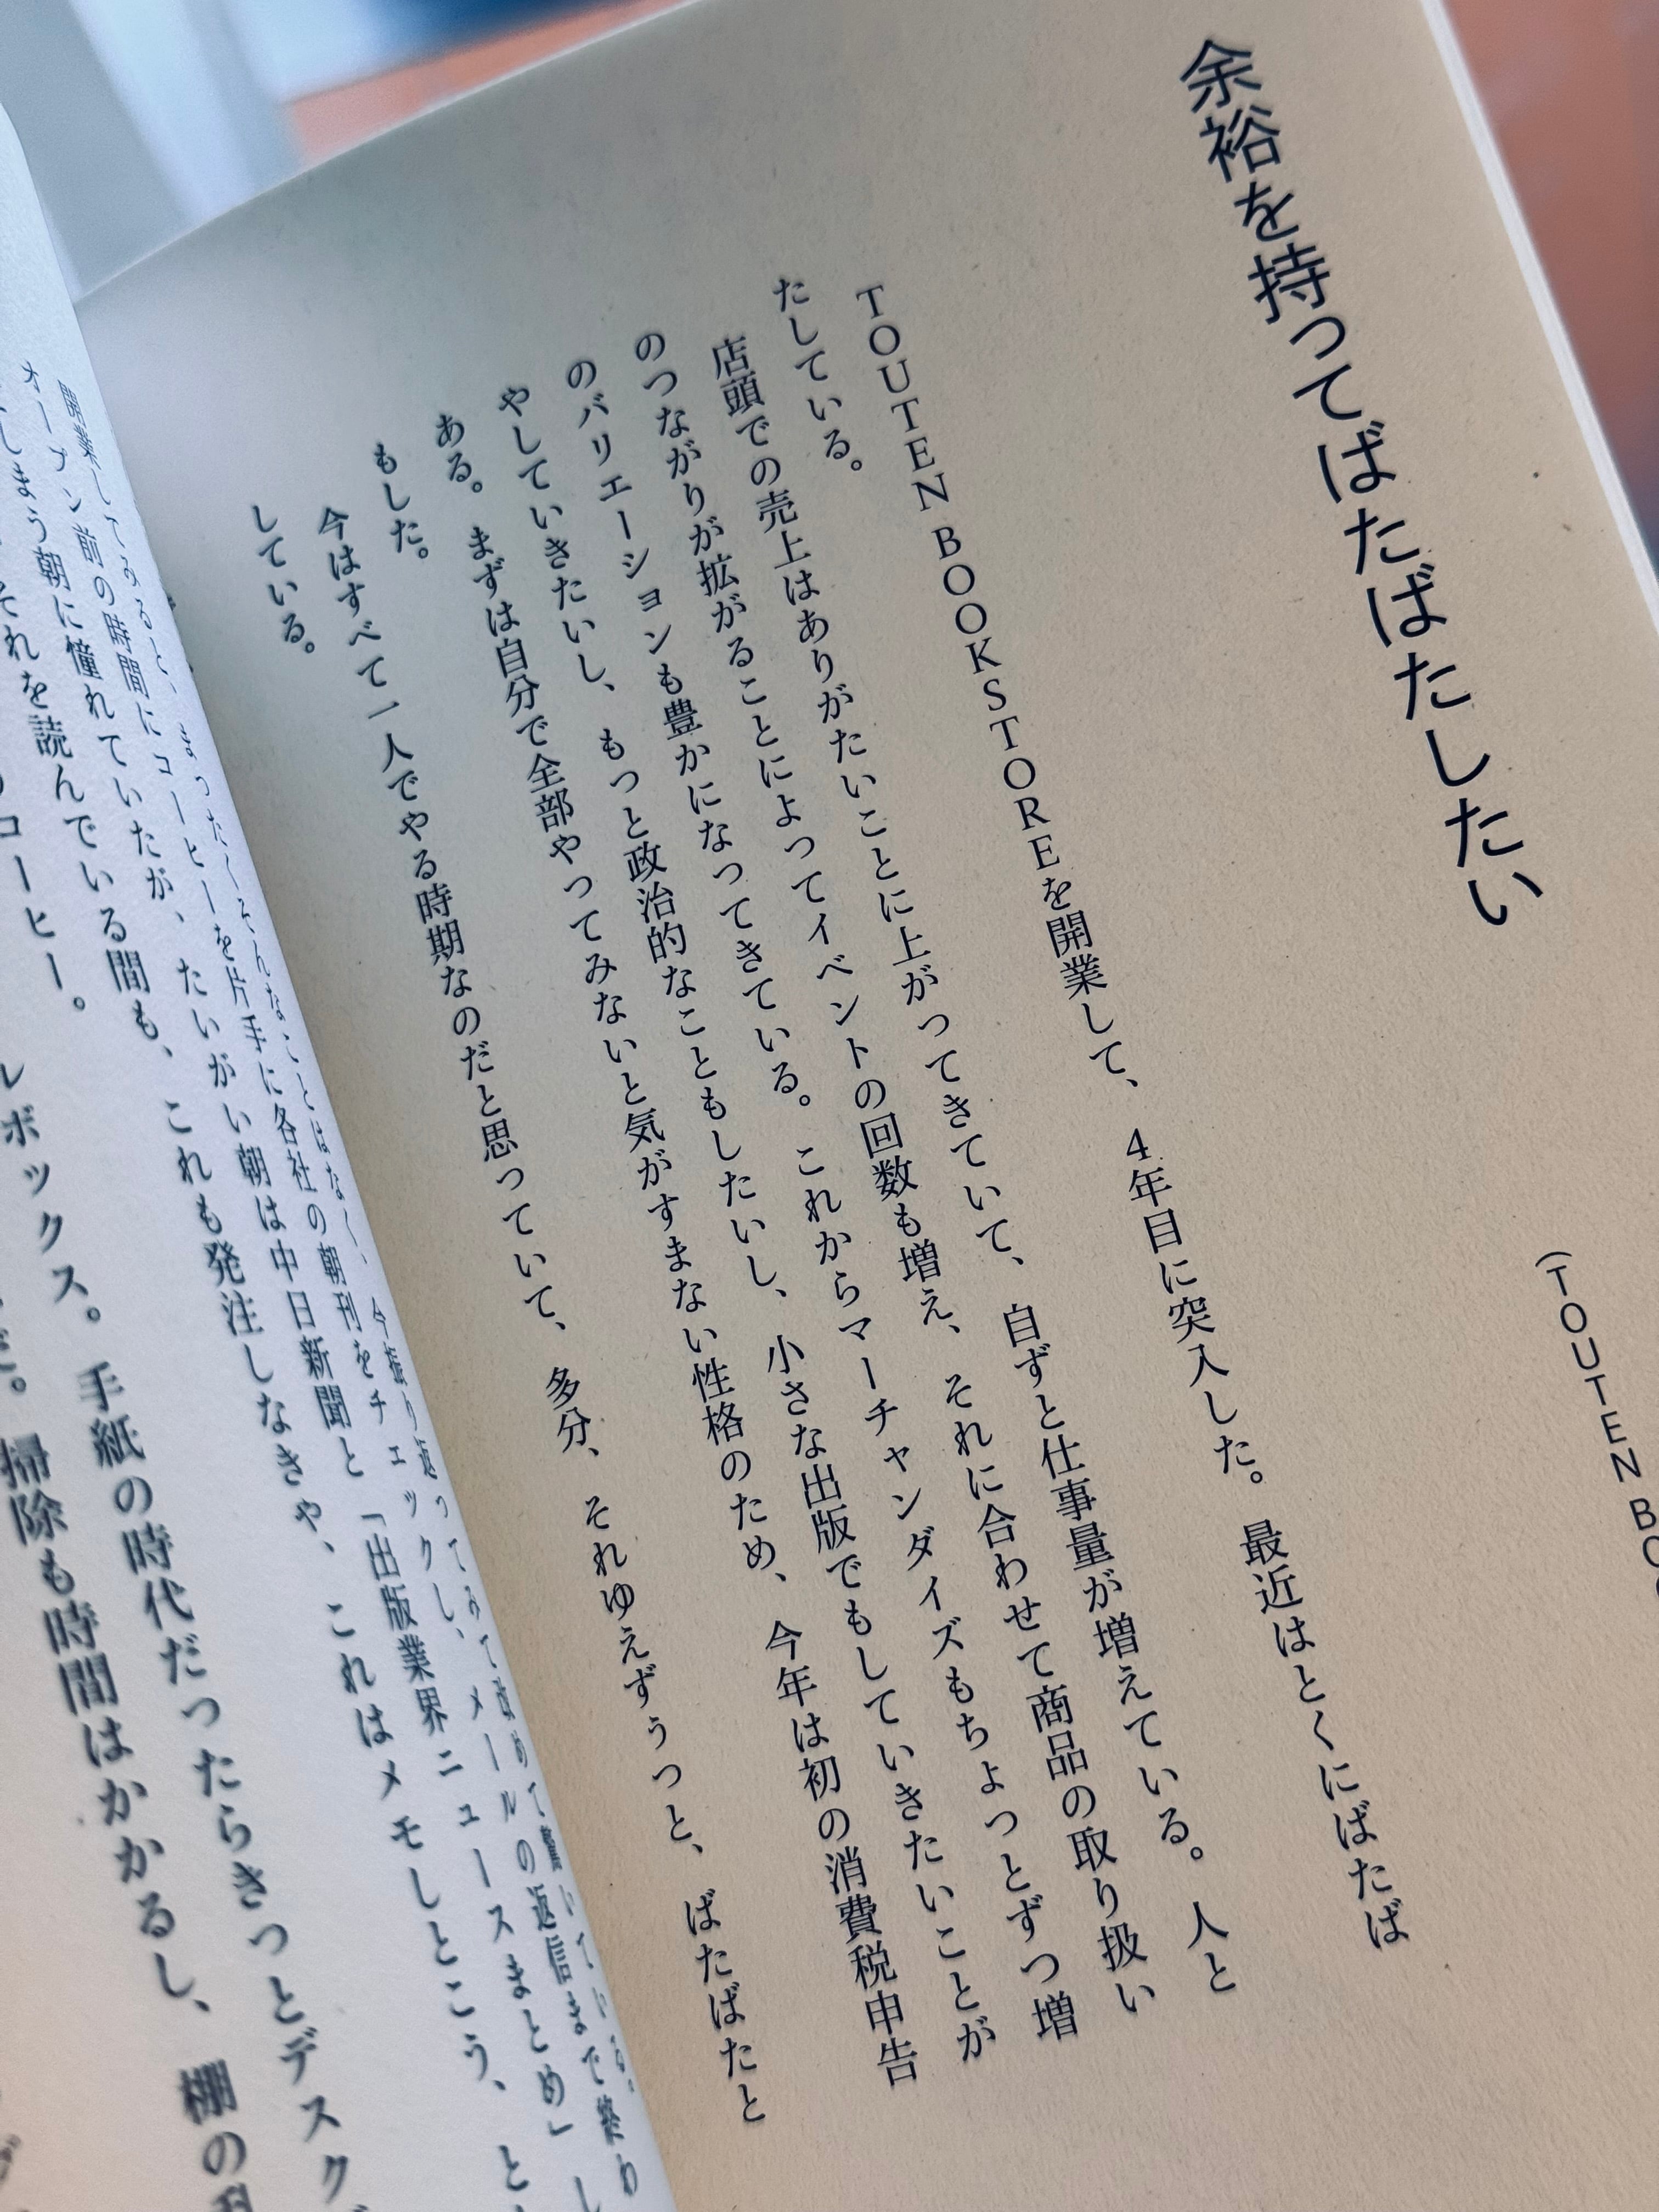 余裕を持ってばたばたしたい
（TOUTEN BO
TOUTEN BOOKSTOREを開業して、4年目に突入した。最近はとくにばたば
たしている。
店頭での売上はありがたいことに上がってきていて、自ずと仕事量が増えている。人と
のつながりが拡がることによってイベントの回数も増え、それに合わせて商品の取り扱い
のバリエーションも豊かになってきている。これからマーチャンダイズもちょっとずつ増
やしていきたいし、もっと政治的なこともしたいし、小さな出版でもしていきたいことが
ある。まずは自分で全部やってみないと気がすまない性格のため、今年は初の消費税申告
もした。
今はすべて一人でやる時期なのだと思っていて、多分、それゆえずうっと、ばたばたと
している。
開業してみると、まったくそんなことはなく、今振り返ってみて改めて驚いている。
オープン前の時間にコーヒーを片手に各社の朝刊をチェックし、メールの返信まで終わ
しまう朝に憧れていたが、たいがい朝は中日新聞と「出版業界ニュースまとめ」
それを読んでいる間も、これも発注しなきゃ、これはメモしとこう、と
コーヒー。
レボックス。手紙の時代だったらきっとデスク
掃除も時間はかかるし、棚の